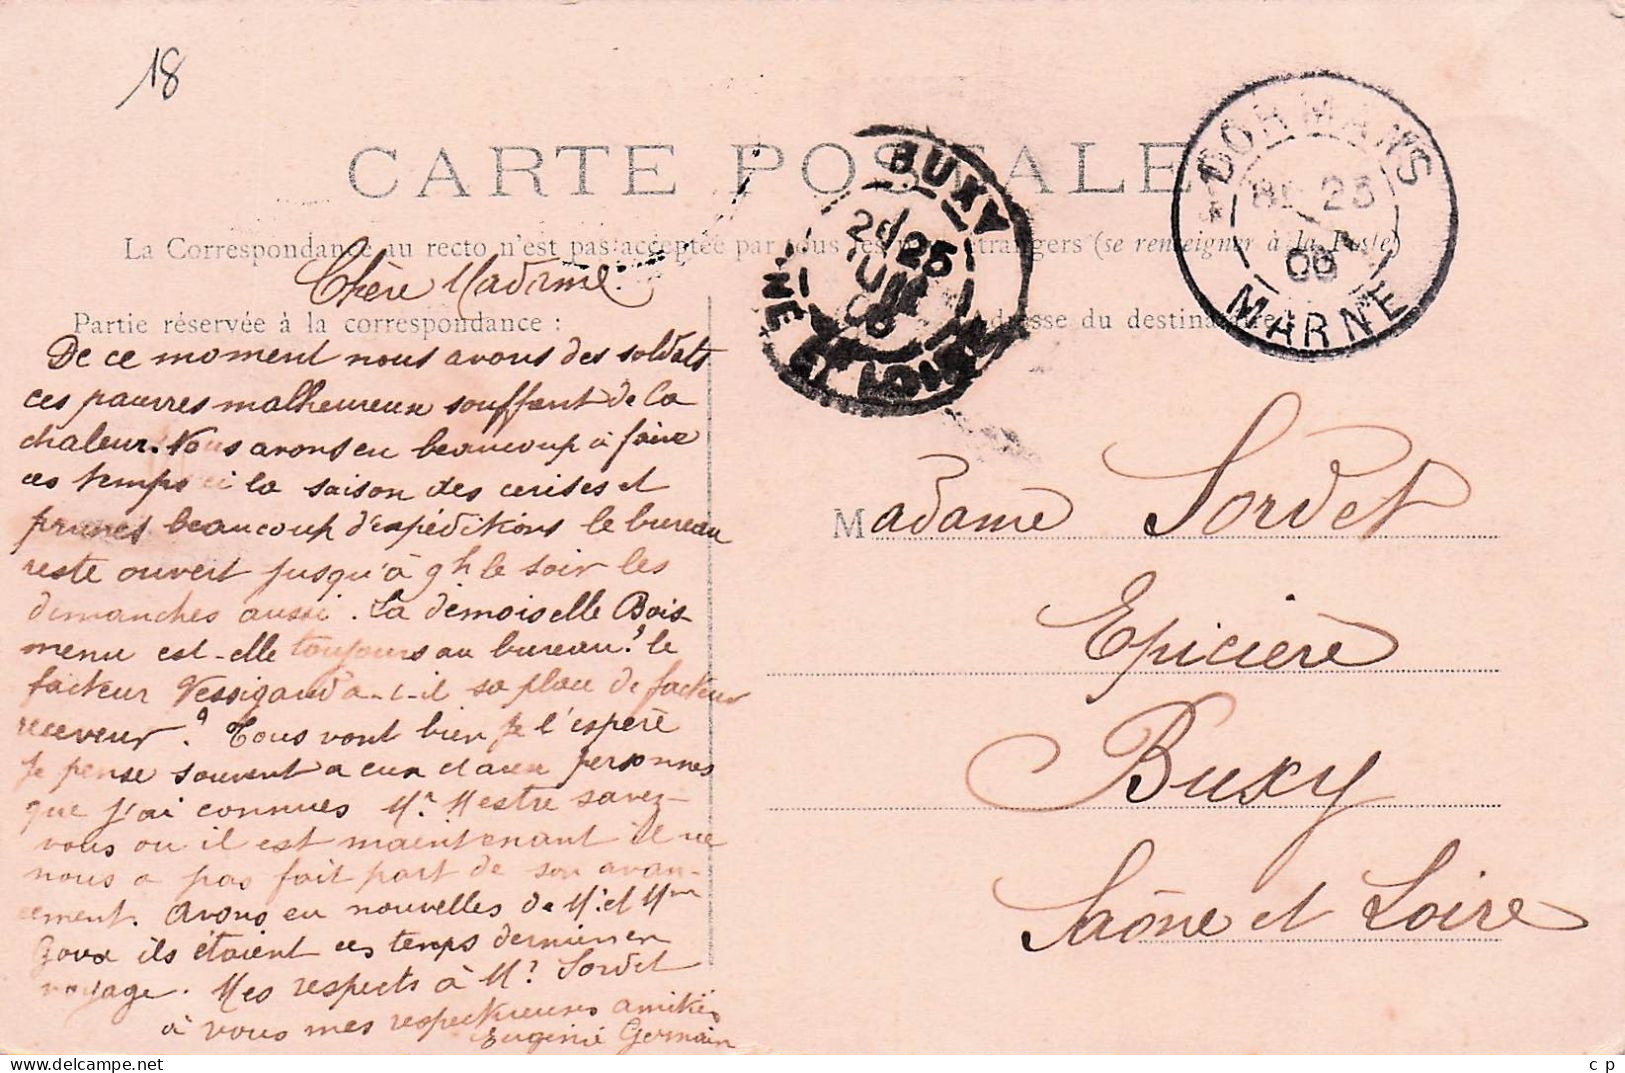 18
CARTE POSTALE
La Correspondance au recto n'est pas acceptée par tous les pays étrangers (se renseigner à la Poste)
BUXY
25
DORMANS
25
06
MARNE
Chère Madame.
Partie réservée à la correspondance :
Adresse du destinataire
De ce moment nous avons des soldats
ces pauvres malheureux souffrent de la
chaleur. Nous avons eu beaucoup à faire
ces temps ci la saison des cerises et
prunes beaucoup d'expéditions le bureau
reste ouvert jusqu'à 9h le soir les
dimanches aussi. La demoiselle Bois-
menu est-elle toujours au bureau? le
facteur Vessigaud a-t-il sa place de facteur
receveur? Tous vont bien je l'espère
Je pense souvent a eux et aux personnes
que j'ai connues Mr Mestre savez-
vous ou il est maintenant il ne
nous a pas fait part de son avan-
cement. Avons eu nouvelles de Mr et Mme
Goux ils étaient ces temps derniers en
voyage. Mes respects à Mr Sordet
à vous mes respectueuses amitiés
Eugénie Germain
Madame Sordet
Epicière
Buxy
Saône et Loire
c p